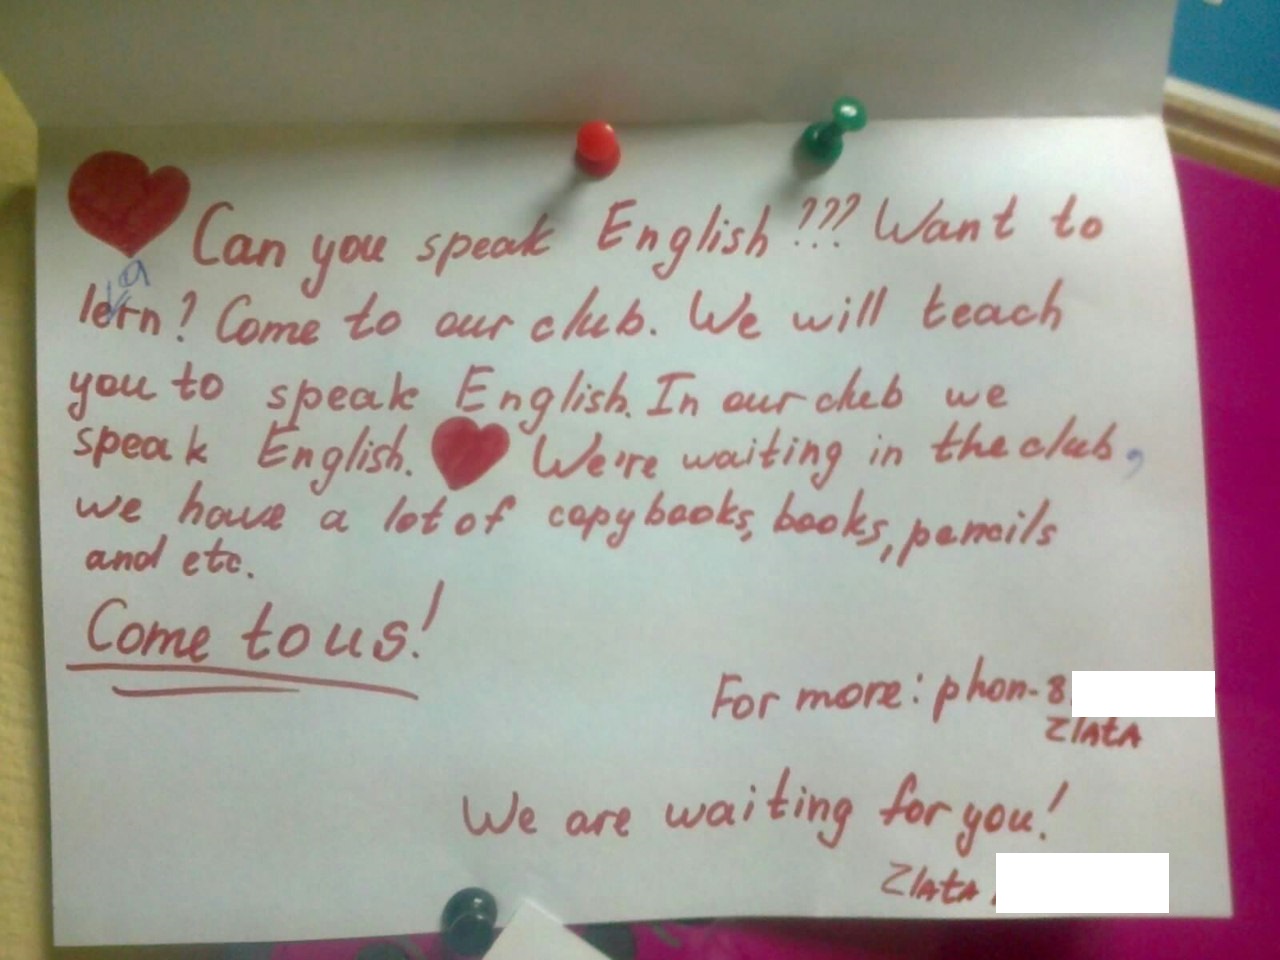 Can you speak English??? Want to
lern? Come to our club. We will teach
a
you to speak English. In our club we
speak English. We're waiting in the club,
we have a lot of copybooks, books, pencils
and etc.
Come to us!
For more: phon-8
Zlata
We are waiting for you!
Zlata